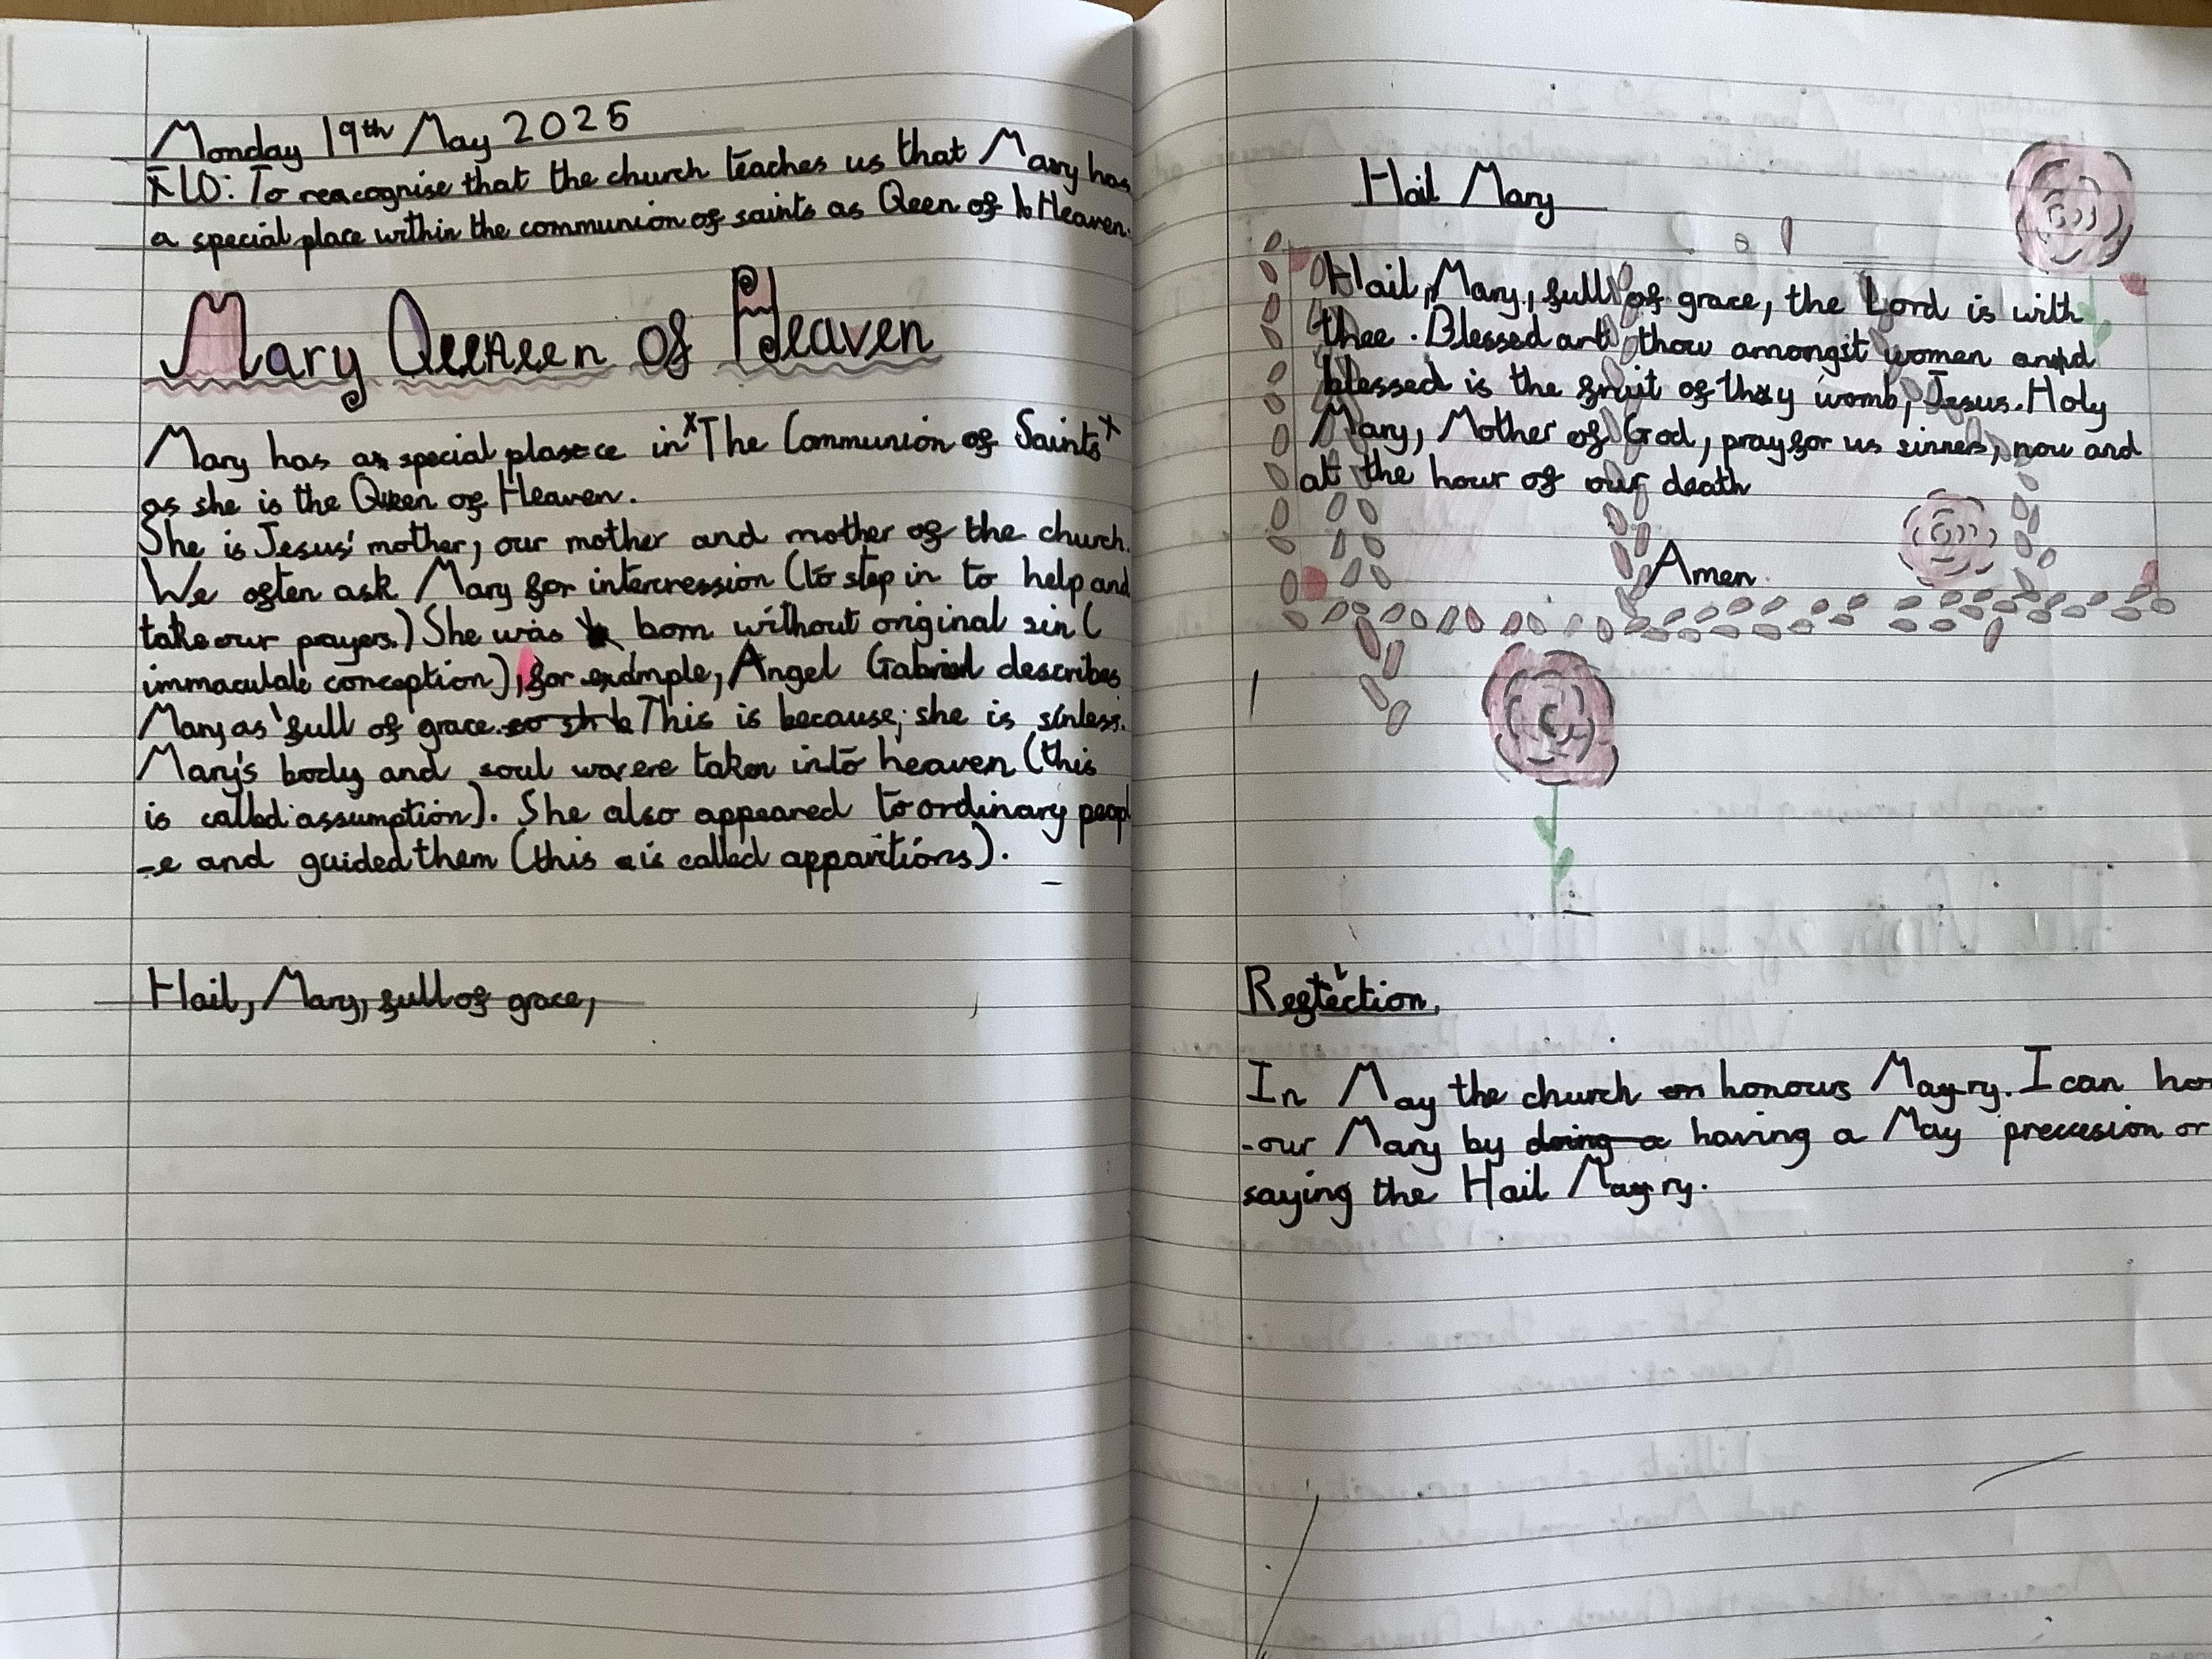 Monday 19th May 2025
LO: To reacognise that the church teaches us that Mary has
a special place within the communion of saints as Qeen of Heaven.
Mary Queen of Heaven
Mary has a special place in The Communion of Saints
as she is the Queen of Heaven.
She is Jesus' mother, our mother and mother of the church.
We often ask Mary for intercression (to step in to help and
take our prayers.) She was born without original sin (
immaculate conception), for example, Angel Gabriel describes
Mary as 'full of grace. This is because, she is sinless.
Mary's body and soul were taken into heaven (this
is called assumption). She also appeared to ordinary peopl
-e and guided them (this is called apparitions).
Hail, Mary, full of grace,
Hail Mary
Hail, Mary, full of grace, the Lord is with
thee. Blessed art thou amongst women and
blessed is the fruit of thy womb, Jesus. Holy
Mary, Mother of God, pray for us sinners, now and
at the hour of our death
Amen.
Reflection.
In May the church honours Mary. I can ho
-our Mary by doing a having a May precession or
saying the Hail Mary.